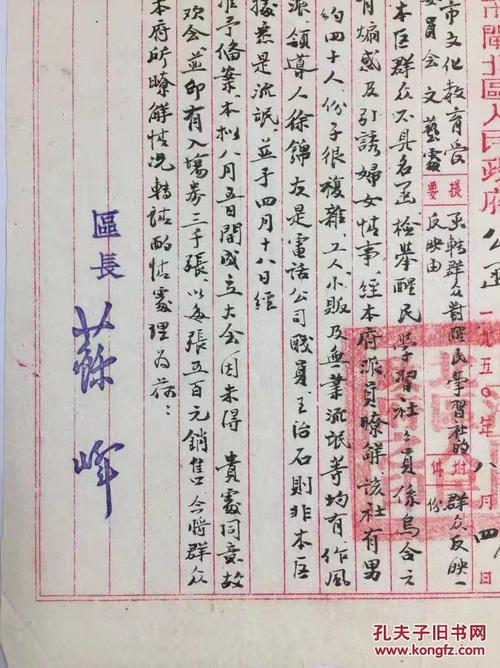 市閘北區人民政府公函 一九五〇年八月四日
市文化教育
委員会文藝處
提要
函轉群众對醒民學習社的
反映由
附件
群众反映一
份
本區群众不具名函檢舉醒民學習社社員係烏合之
有煽惑及引誘婦女情事，經本府派員暸解該社有男
約四十人，份子很複雜，工人小販及無業流氓等均有，作風
派領導人徐錦友是電話公司職員，王治石則非本區
接意是流氓，並于四月十八日經
准予備案，本拟八月五日開成立大会因未得 貴處同意故
欢会並印有入場券三千張，以每張五百元銷售，合將群众
本府所暸解情况轉請酌情處理为荷：
區長 蘇輝
孔夫子旧书网
www.kongfz.com